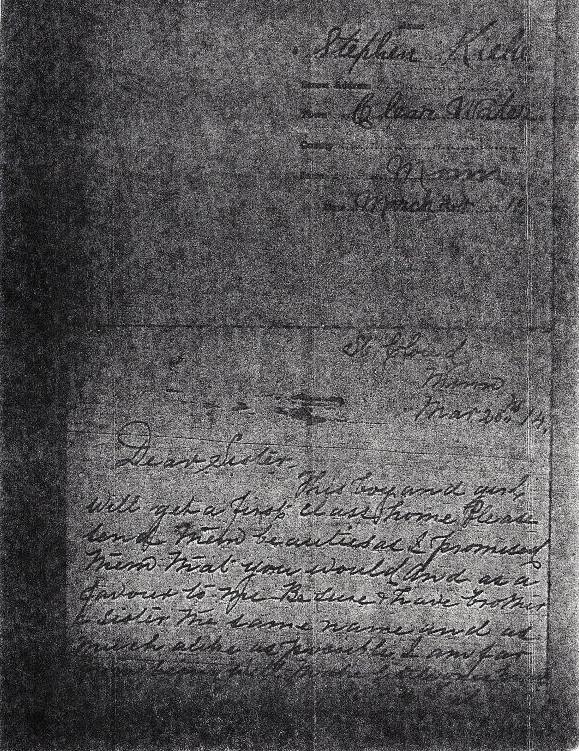 Stephen
Clear Water
Minn
March
St Cloud
Minn
Mar 26th 14
Dear Sister,
This boy and girl
will get a first class home Please
send them beauties as I promised
them that you would and as a
favour to me Be sure & have brother
& sister the same name and as
much alike as possible I am for